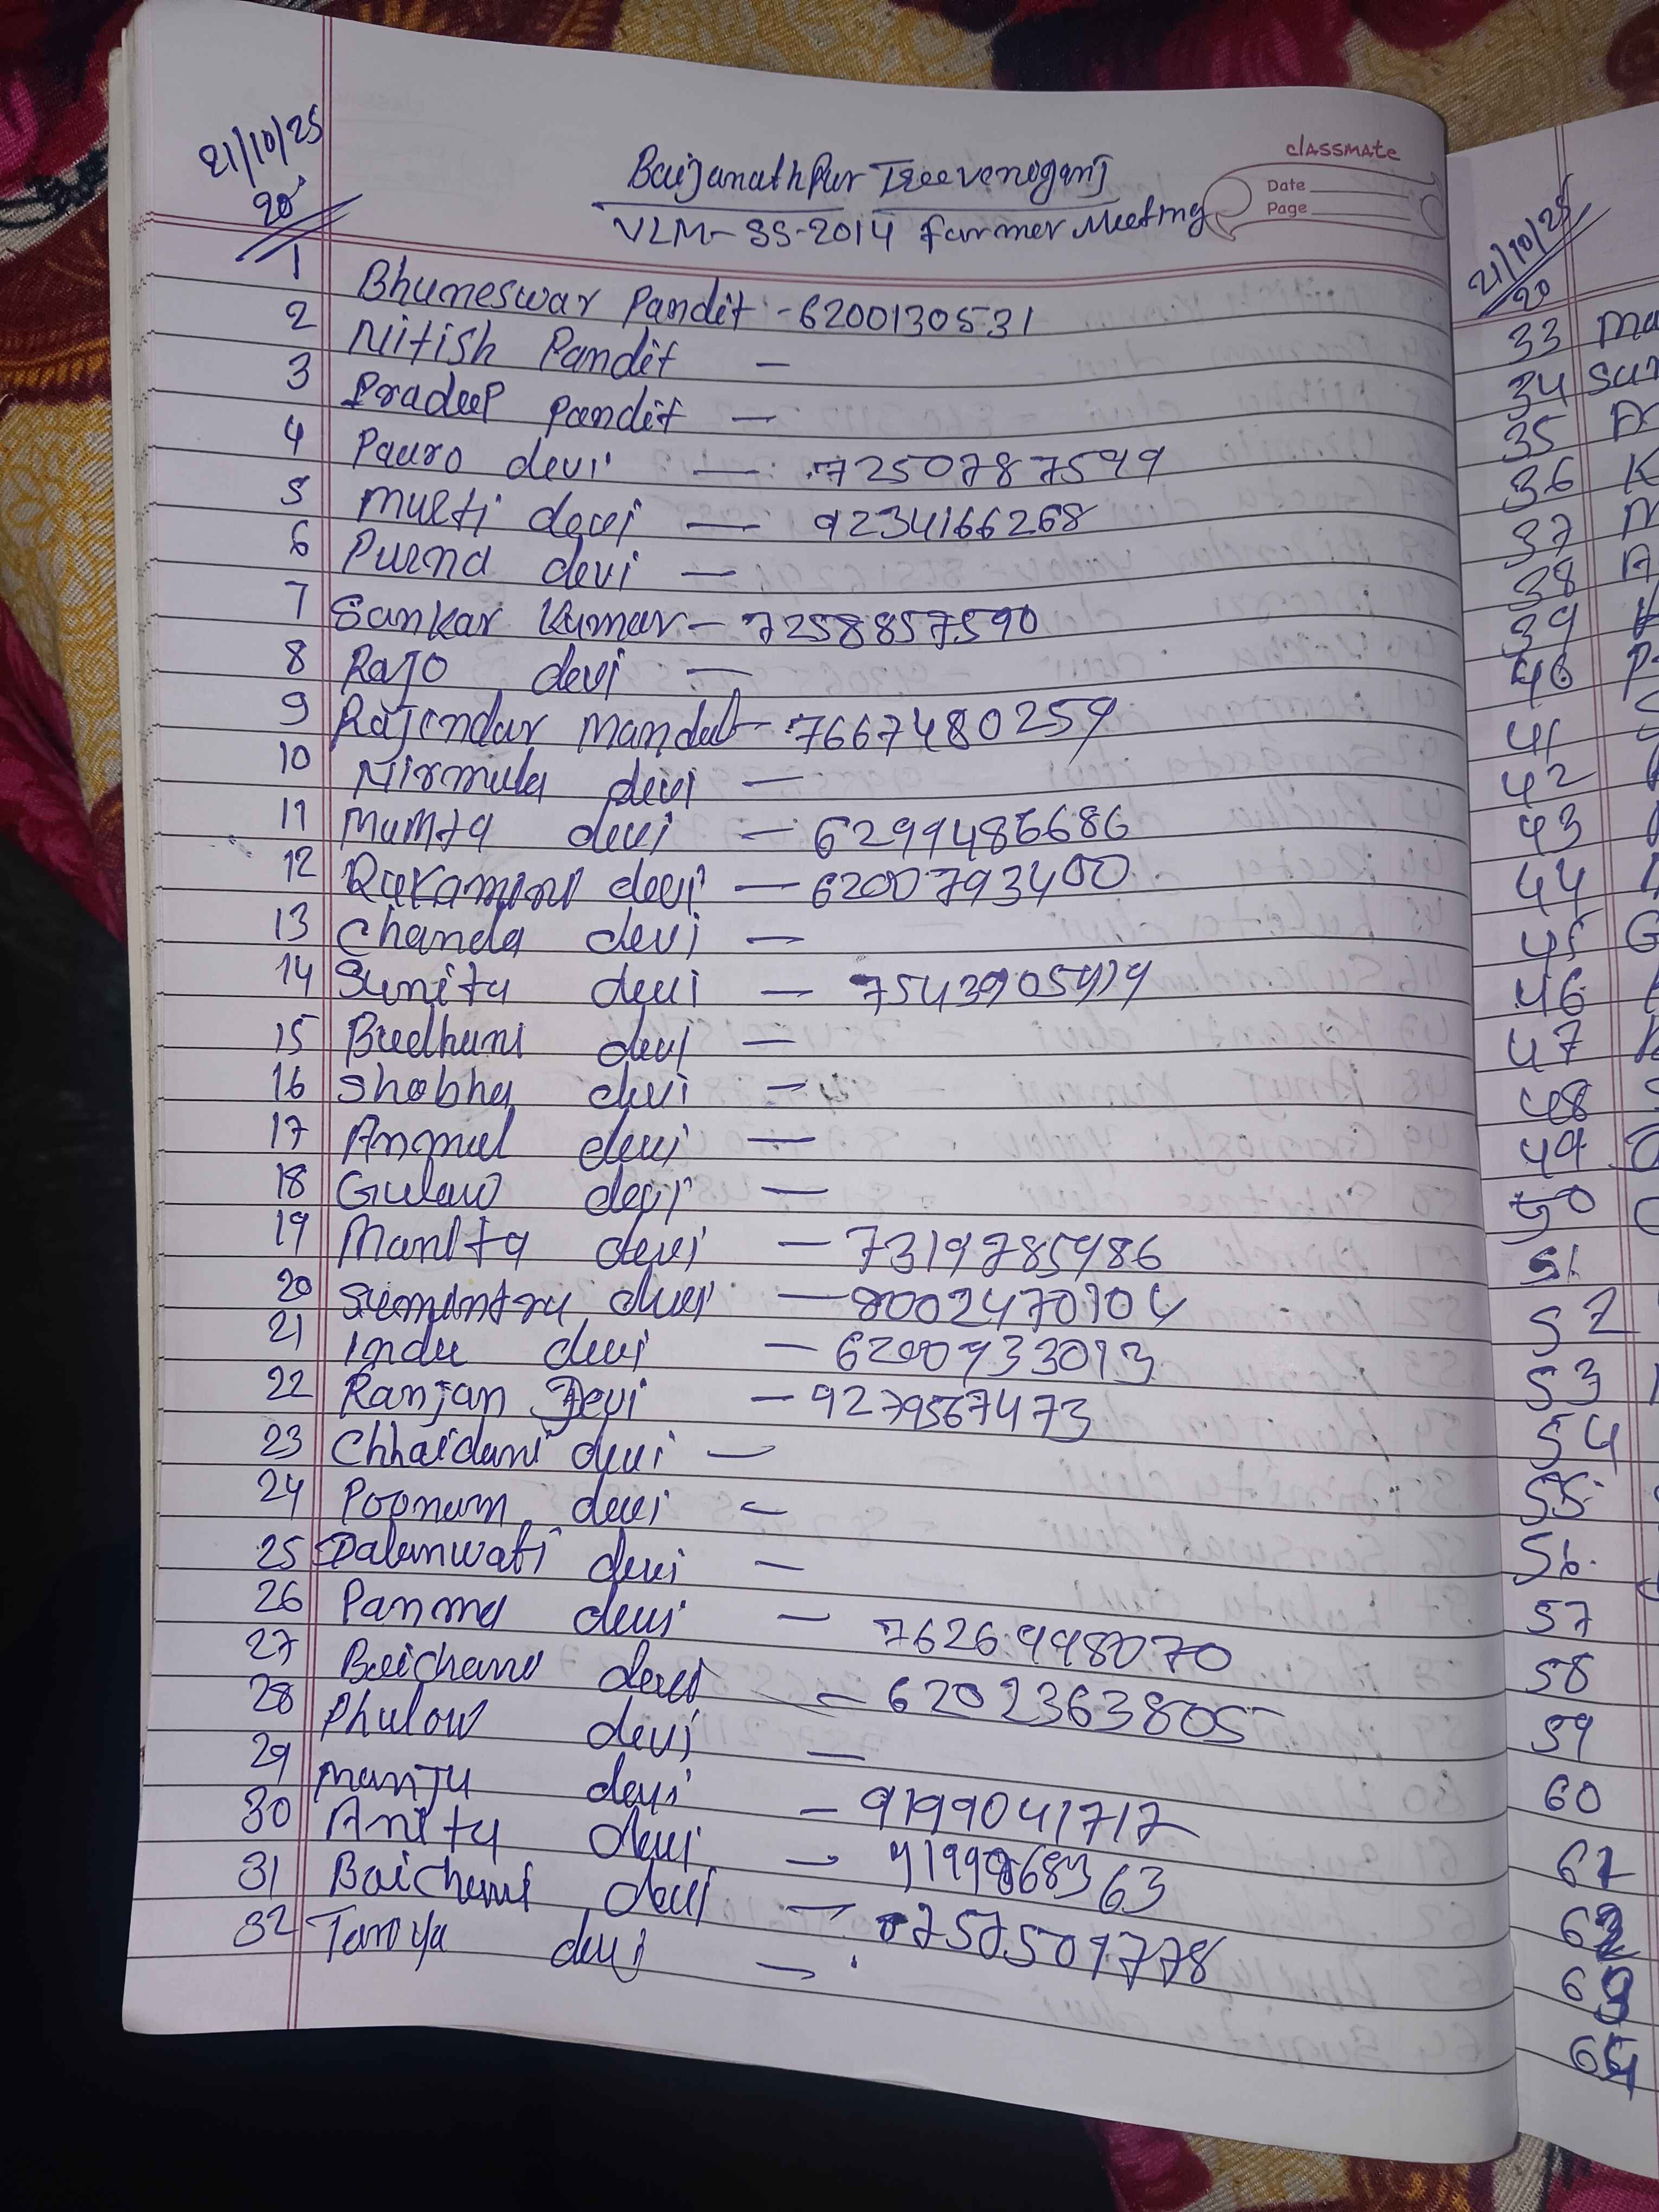 21/10/25
20
classmate
Date
Page
Baijanathpur Treeveniganj
VLM-SS-2014 Farmer Meeting
1 Bhuneswar Pandit - 6200130531
2 Nitish Pandit -
3 Pradeep Pandit -
4 Pauro devi - 7250787599
5 Multi devi - 9234166268
6 Purna devi -
7 Sankar Kumar - 7258857590
8 Rajo devi -
9 Rajendar Mandal - 7667480259
10 Nirmula devi -
11 Mumta devi - 6299486686
12 Rukamini devi - 6200793400
13 Chanda devi -
14 Sunita devi -
15 Budhani devi -
16 Shobha devi -
17 Anmul devi -
18 Gulaw devi -
19 Manita devi - 7319785986
20 Sumantra devi -
21 Indu devi - 6200933013
22 Ranjan Devi - 9279567473
23 Chhaidani devi -
24 Poonum devi -
25 devi -
26 Panma devi - 7626998070
27 Baichani devi - 6202363805
28 Phulow devi -
29 Manju devi - 9199041717
30 Anita devi -
31 Baichani devi - 7575509778
32 Taroya devi -
21/10/25
20
33 Ma
34 Sur
35
36 K
37 M
38 A
39
40 P
41
42
43
44
45 G
46
47
48
49
50
51
52
53
54
55
56
57
58
59
60
61
62
63
64